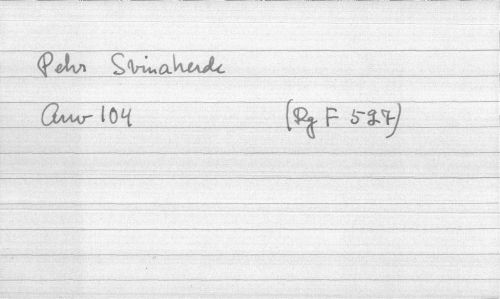 Pehr Svinaherde
Anv 104 (Rg F 527)